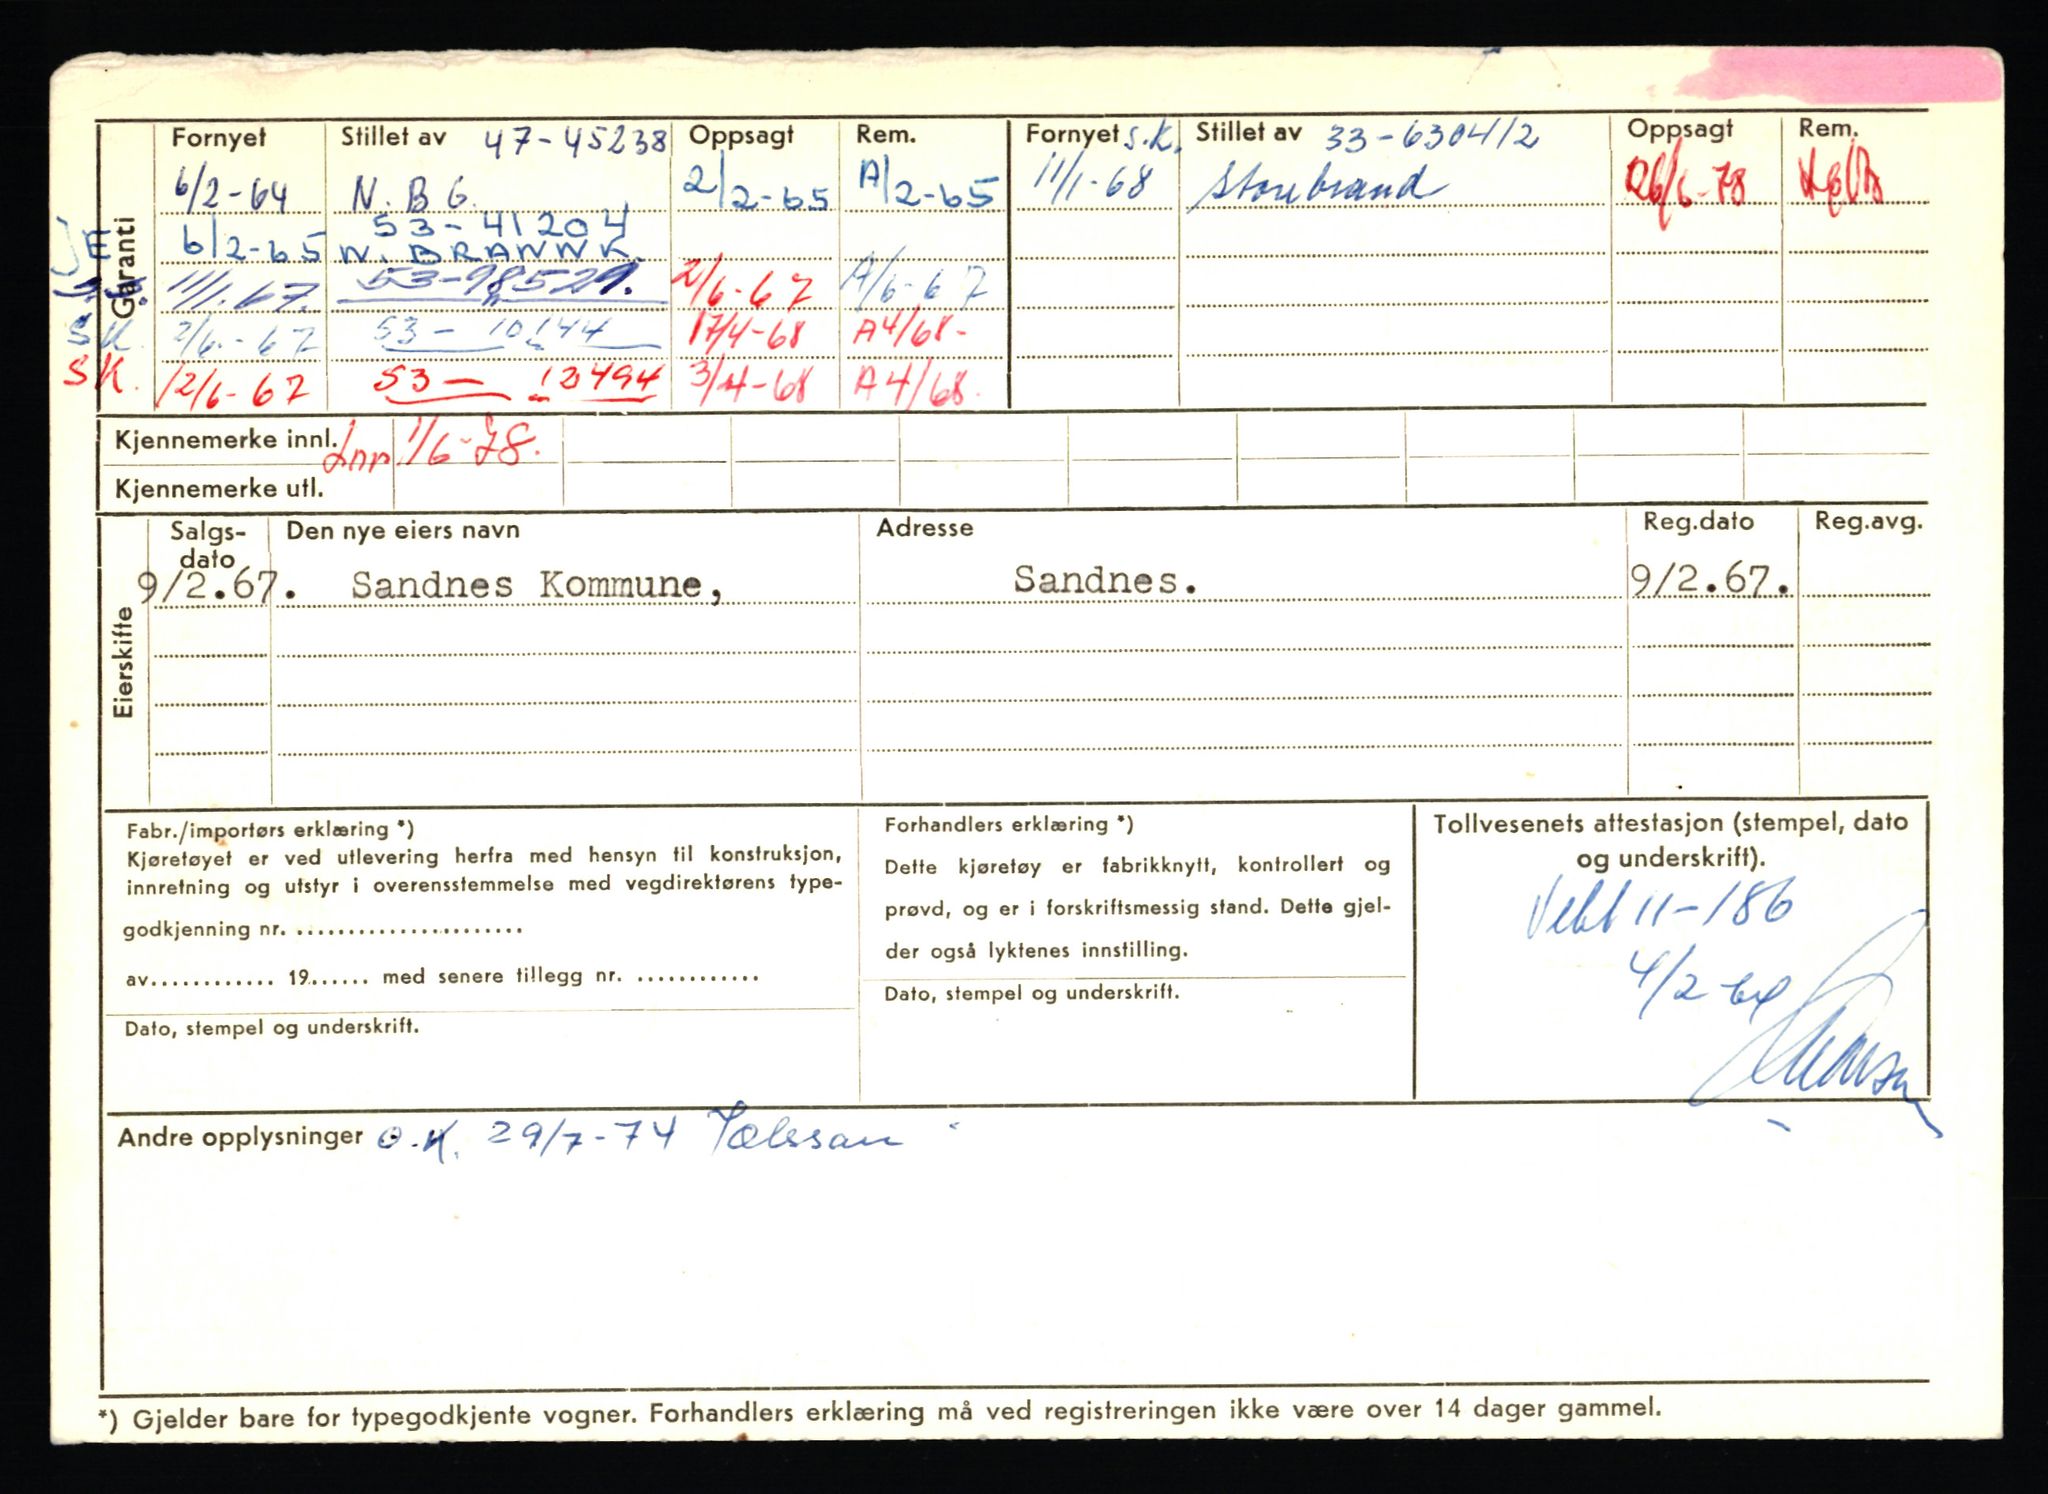 Garanti
Fornyet Stillet av 47-45238 Oppsagt Rem. Fornyet S.K. Stillet av 33-630412 Oppsagt Rem.
6/2-64 N.B.G. 2/2-65 A/2-65 11/1-68 Storebrand 26/6-78
53-41204
JE 6/2-65 N. BRANNK.
11/1.67. 53-98529. 2/6-67 A/6-67
SK. 2/6.-67 53-10144 17/4-68 A4/68-
SK. 12/6-67 53-12494 3/4-68 A4/68.
Kjennemerke innl. Inn 1/6-78.
Kjennemerke utl.
Eierskifte
Salgs- Den nye eiers navn Adresse Reg.dato Reg.avg.
dato
9/2.67. Sandnes Kommune, Sandnes. 9/2.67.
Fabr./importørs erklæring *)
Kjøretøyet er ved utlevering herfra med hensyn til konstruksjon,
innretning og utstyr i overensstemmelse med vegdirektørens type-
godkjenning nr. ......................
av............ 19...... med senere tillegg nr. ............
Dato, stempel og underskrift.
Forhandlers erklæring *)
Dette kjøretøy er fabrikknytt, kontrollert og
prøvd, og er i forskriftsmessig stand. Dette gjel-
der også lyktenes innstilling.
Dato, stempel og underskrift.
Tollvesenets attestasjon (stempel, dato
og underskrift).
11-186
4/2-64
Andre opplysninger O.K. 29/7-74
*) Gjelder bare for typegodkjente vogner. Forhandlers erklæring må ved registreringen ikke være over 14 dager gammel.